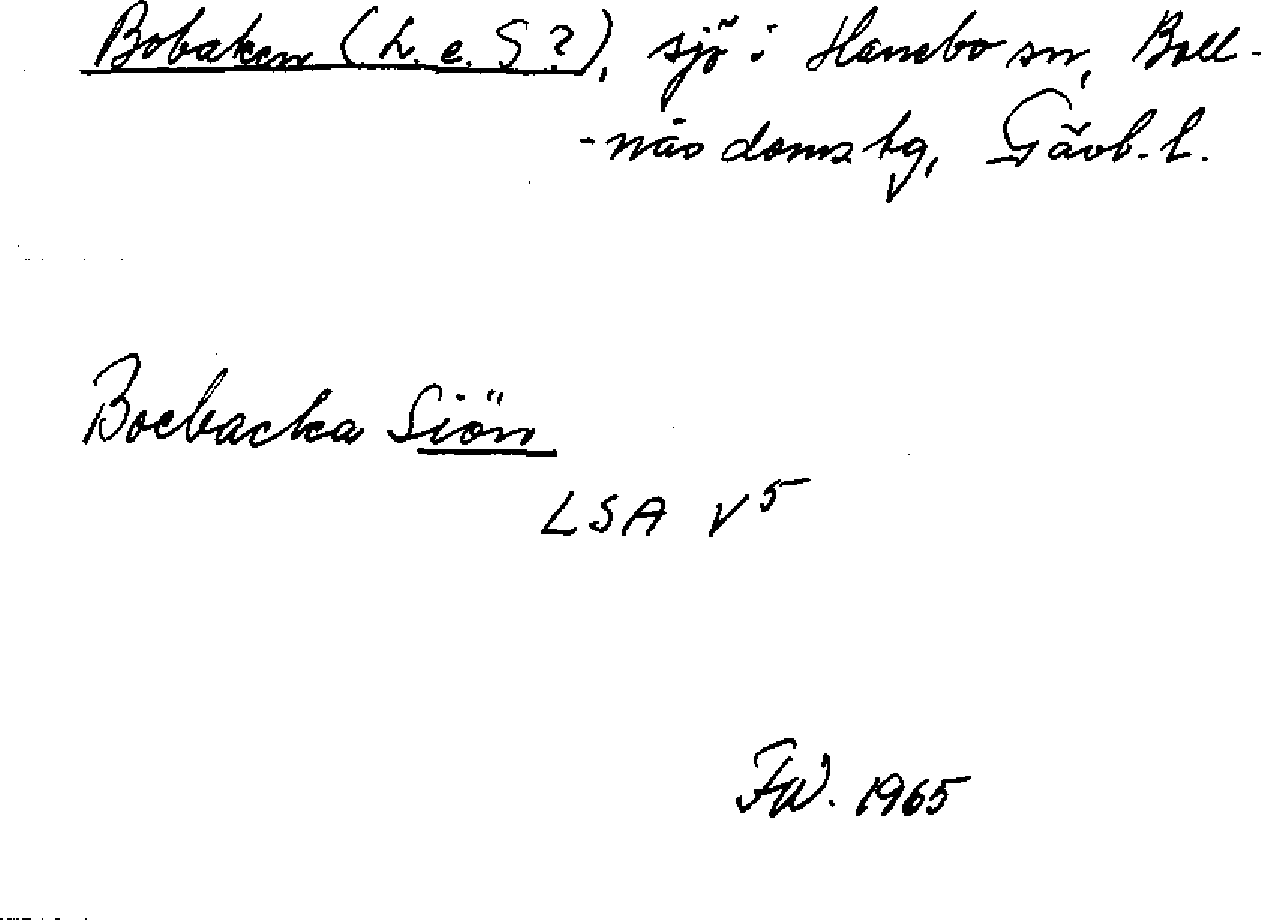 Bobaken (L. e. S?), sjö i Hanebo sn, Boll-
-näs doms tg, Gävl. l.
Boebacka Siön
LSA V5
FW. 1965